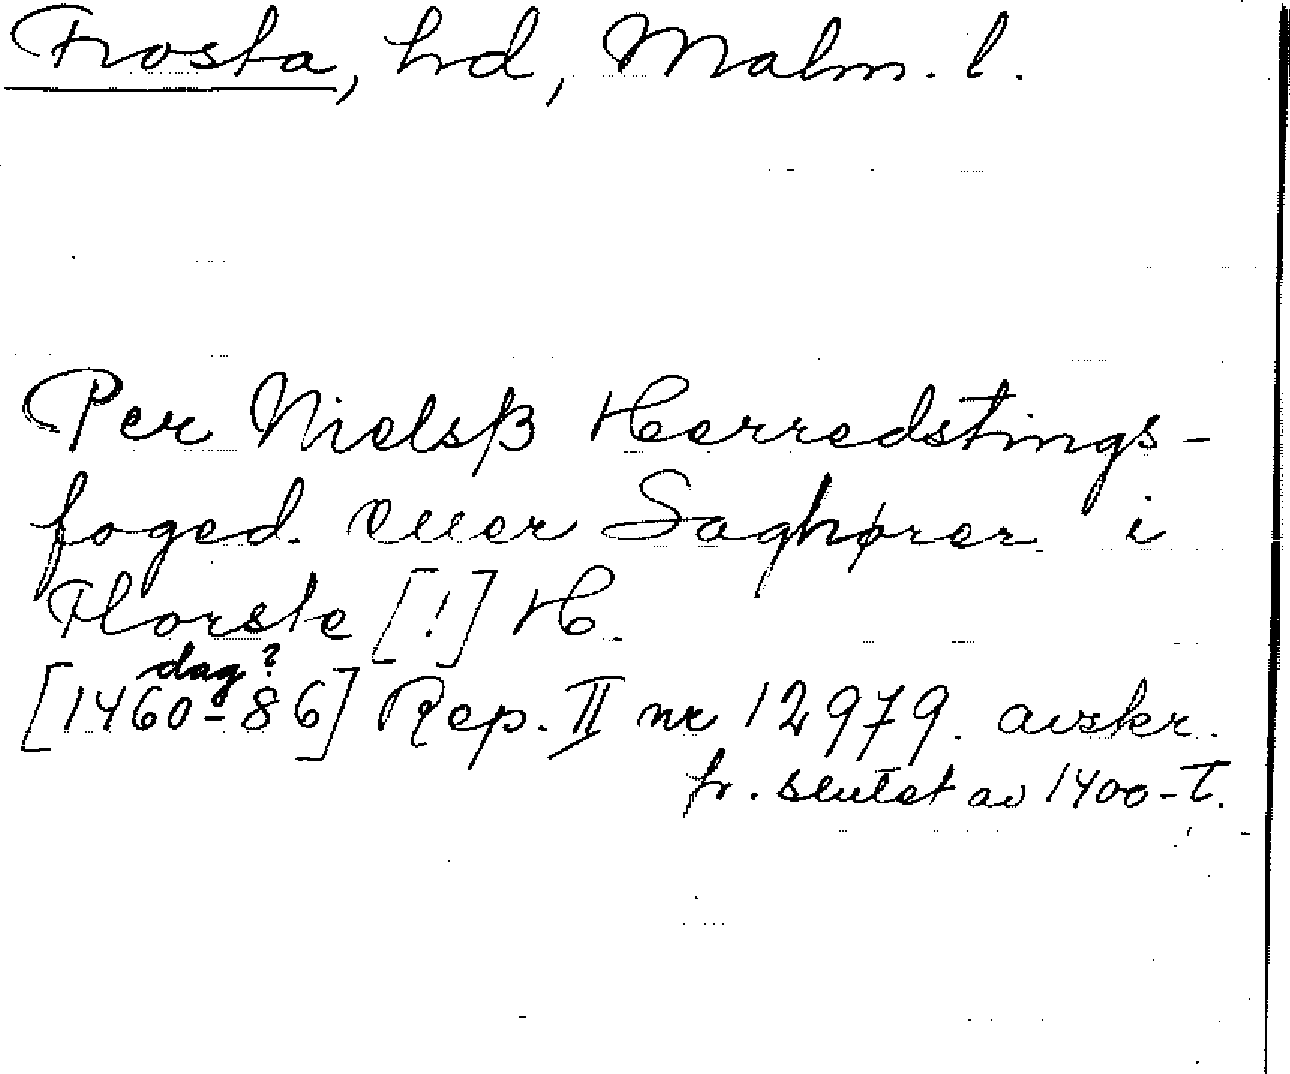 Frosta, hd, Malm. l.
Per Nielsβ Herredstings-
foged. eller Saghører i
Florste [!] H.
dag?
[1460-86] Rep. II nr 12979. avskr.
fr. slutet av 1400-t.